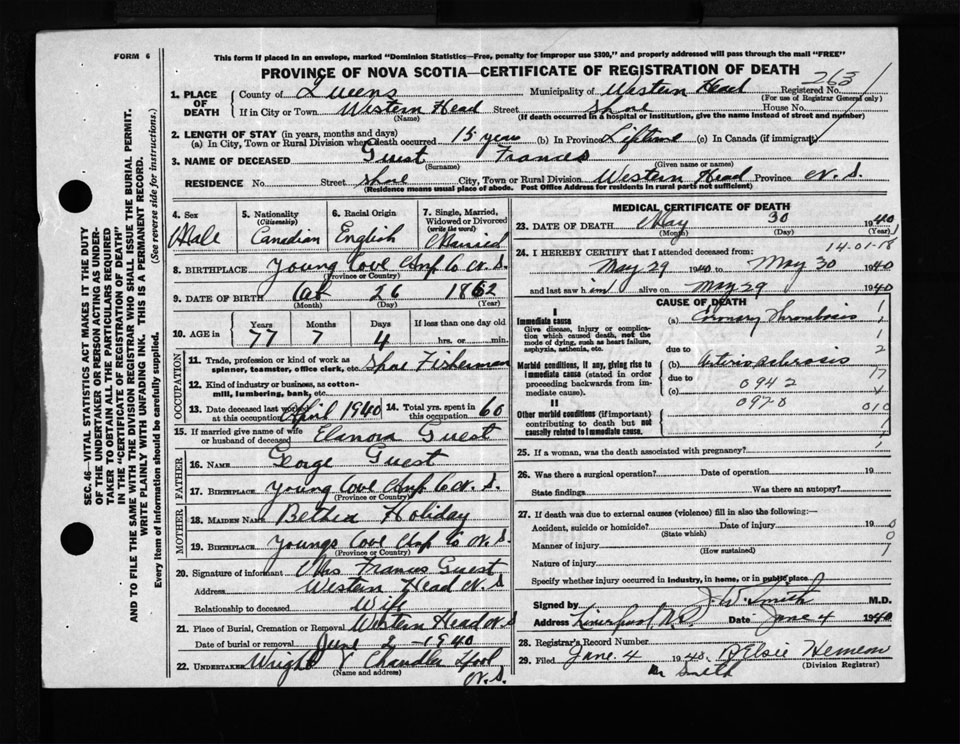 FORM 6
This form if placed in an envelope, marked "Dominion Statistics—Free, penalty for improper use $300," and properly addressed will pass through the mail "FREE"
PROVINCE OF NOVA SCOTIA—CERTIFICATE OF REGISTRATION OF DEATH
263
1. PLACE OF DEATH
County of Queens Municipality of Western Head Registered No.
(For use of Registrar General only)
If in City or Town Western Head Street Shore House No.
(Name) (If death occurred in a hospital or institution, give the name instead of street and number)
2. LENGTH OF STAY (in years, months and days)
(a) In City, Town or Rural Division where death occurred 15 years (b) In Province Lifetime (c) In Canada (if immigrant)
3. NAME OF DECEASED Guest Frances
(Surname) (Given name or names)
RESIDENCE No. Street Shore City, Town or Rural Division Western Head Province N.S.
(Residence means usual place of abode. Post Office Address for residents in rural parts not sufficient)
4. Sex Male
5. Nationality (Citizenship) Canadian
6. Racial Origin English
7. Single, Married, Widowed or Divorced (write the word) Married
8. BIRTHPLACE Young Cove N.S.
(Province or Country)
9. DATE OF BIRTH 26 1862
(Month) (Day) (Year)
10. AGE in Years Months Days If less than one day old
77 7 4 hrs. or min.
OCCUPATION
11. Trade, profession or kind of work as spinner, teamster, office clerk, etc. Shore Fisherman
12. Kind of industry or business, as cotton-mill, lumbering, bank, etc.
13. Date deceased last worked at this occupation April 1940
14. Total yrs. spent in this occupation 60
15. If married give name of wife or husband of deceased Elanora Guest
FATHER
16. NAME George Guest
17. BIRTHPLACE Young Cove N.S.
(Province or Country)
MOTHER
18. MAIDEN NAME Bethia Holiday
19. BIRTHPLACE Youngs Cove N.S.
(Province or Country)
20. Signature of informant Mrs Frances Guest
Address Western Head N.S
Relationship to deceased Wife
21. Place of Burial, Cremation or Removal Western Head N.S
Date of burial or removal June 2 - 1940
22. UNDERTAKER Wright & Chandler
(Name and address) N.S.
MEDICAL CERTIFICATE OF DEATH
23. DATE OF DEATH May 30 1940
(Month) (Day) (Year)
14-01-18
24. I HEREBY CERTIFY that I attended deceased from:
May 29 1940 to May 30 1940
and last saw him alive on May 29 1940
CAUSE OF DEATH
I
Immediate cause
Give disease, injury or complication which caused death, not the mode of dying, such as heart failure, asphyxia, asthenia, etc.
(a) Coronary Thrombosis
due to
Morbid conditions, if any, giving rise to immediate cause (stated in order proceeding backwards from immediate cause).
(b) Arteriosclerosis
due to
(c) 0942
II
0970
Other morbid conditions (if important) contributing to death but not causally related to immediate cause.
25. If a woman, was the death associated with pregnancy?
26. Was there a surgical operation? Date of operation 19
State findings Was there an autopsy?
27. If death was due to external causes (violence) fill in also the following:—
Accident, suicide or homicide? Date of injury 19
(State which)
Manner of injury
(How sustained)
Nature of injury
Specify whether injury occurred in industry, in home, or in public place
Signed by J. W. Smith M.D.
Address Liverpool N.S. Date June 4 1940
28. Registrar's Record Number
29. Filed June 4 1940
(Division Registrar)
SEC. 46—VITAL STATISTICS ACT MAKES IT THE DUTY
OF THE UNDERTAKER OR PERSON ACTING AS UNDERTAKER
TO OBTAIN ALL THE PARTICULARS REQUIRED
IN THE "CERTIFICATE OF REGISTRATION OF DEATH"
AND TO FILE THE SAME WITH THE DIVISION REGISTRAR WHO SHALL ISSUE THE BURIAL PERMIT.
WRITE PLAINLY WITH UNFADING INK. THIS IS A PERMANENT RECORD.
Every item of information should be carefully supplied. (See reverse side for instructions.)